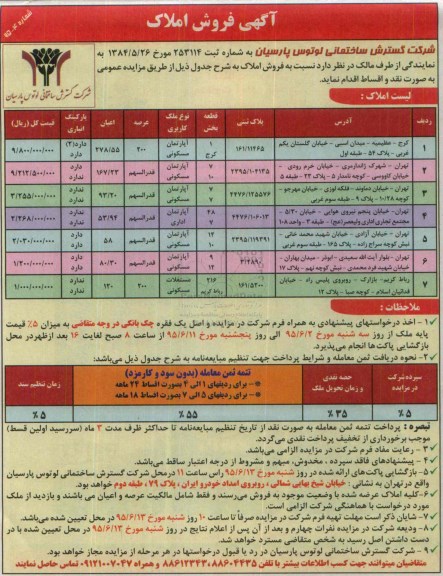 آگهی فروش املاک
شماره ۲-۹۵
شرکت گسترش ساختمانی لوتوس پارسیان به شماره ثبت ۲۵۳۱۱۴ مورخ ۱۳۸۴/۵/۲۶ به
نمایندگی از طرف مالک در نظر دارد نسبت به فروش املاک به شرح جدول ذیل از طریق مزایده عمومی
به صورت نقد و اقساط اقدام نماید.
شرکت گسترش ساختمانی لوتوس پارسیان
لیست املاک :
ردیف آدرس پلاک ثبتی قطعه بخش نوع ملک کاربری عرصه اعیان پارکینگ انباری قیمت کل (ریال)
۱ کرج - عظیمیه - میدان اسبی - خیابان گلستان یکم غربی - پلاک ۵۴ - طبقه اول ۱۶۱/۱۱۲۶۵ ۱ کرج آپارتمان مسکونی ۲۰۰ ۲۷۸/۵۵ دارد(۲) دارد ۹/۸۰۰/۰۰۰/۰۰۰
۲ تهران - شهرک ژاندارمری - خیابان خرم رودی - خیابان کاووسی - کوچه نامدار ۵ - پلاک ۲۳ - طبقه ۵ ۲۳۹۵/۱۰۲۱۳۵ ۷ ۱۰ آپارتمان مسکونی قدرالسهم ۱۶۷/۲۳ دارد دارد ۹/۲۱۲/۵۰۰/۰۰۰
۳ تهران - خیابان دماوند - فلکه لوزی - خیابان مهرجو - کوچه ۱۰/۲۸ - پلاک ۹ - طبقه سوم غربی ۴۴۷۶/۱۲۵۵۷۶ ۷ آپارتمان مسکونی قدرالسهم ۹۳/۲۰ دارد دارد ۳/۲۵۵/۰۰۰/۰۰۰
۴ تهران - خیابان پنجم نیروی هوایی - خیابان ۵/۲۰ - مجتمع تجاری اداری ولیعصر(عج) - طبقه ۳ - واحد ۱۰۸ ۴۴۷۶/۱۰۶۰۱۳ ۲۸ ۷ آپارتمان اداری قدرالسهم ۵۳/۹۴ ندارد ندارد ۲/۲۶۸/۰۰۰/۰۰۰
۵ تهران - خیابان آزادی - خیابان شهید محمد خانی - نبش کوچه سراج زاده - پلاک ۱۶۵ - طبقه سوم غربی ۲۳۹۵/۱۱۹۳۹۱ ۱۳ ۱۰ آپارتمان مسکونی قدرالسهم ۵۸ ندارد دارد ۲/۰۳۰/۰۰۰/۰۰۰
۶ تهران - بلوار آیت الله سعیدی - ابوذر - میدان بهاران - خیابان شهید فرد محمدی - نبش کوچه نهم - پلاک ۱۷ ۳/۴۸۹۰ ۹ ۱۲ آپارتمان مسکونی قدرالسهم ۸۰/۳۰ ندارد دارد ۱/۲۰۰/۰۰۰/۰۰۰
۷ رباط کریم - بازارک - روبروی پلیس راه - خیابان فدائیان اسلام - کوچه صبا - پلاک ۱۲ ۱۶۱/۵۲۰۰ ۲۱۶ رباط کریم مستغلات مسکونی ۲۰۰ ۱۲۰ ندارد ندارد ۱/۰۰۰/۰۰۰/۰۰۰
ملاحظات :
۱- اخذ درخواستهای پیشنهادی به همراه فرم شرکت در مزایده و اصل یک فقره چک بانکی در وجه متقاضی به میزان ۵٪ قیمت
پایه ملک از روز سه شنبه مورخ ۹۵/۶/۲ الی روز پنجشنبه مورخ ۹۵/۶/۱۱ از ساعت ۸ صبح لغایت ۱۶ بعد ازظهردر محل
بازگشایی پاکت‌ها انجام می‌پذیرد.
۲- نحوه دریافت ثمن معامله و شرایط پرداخت جهت تنظیم مبایعه‌نامه به شرح جدول ذیل می‌باشد.
سپرده شرکت در مزایده حصه نقدی و زمان تحویل ملک تتمه ثمن معامله (بدون سود و کارمزد) زمان تنظیم سند
* - برای ردیفهای ۱ الی ۴ بصورت اقساط ۲۴ ماهه
* - برای ردیفهای ۵ الی ۷ بصورت اقساط ۱۸ ماهه
۵٪ ۳۵٪ ۵۵٪ ۵٪
تبصره : پرداخت تتمه ثمن معامله به صورت نقد از تاریخ تنظیم مبایعه‌نامه تا حداکثر ظرف مدت ۳ ماه (سررسید اولین قسط)
موجب برخورداری از تخفیف پرداخت نقدی می‌گردد.
۳- رعایت مفاد فرم شرکت در مزایده الزامی می‌باشد.
۴- پیشنهادهای فاقد سپرده ، مخدوش، مبهم و مشروط از درجه اعتبار ساقط می‌باشد.
۵- بازگشایی پاکت‌های ارائه شده در روز شنبه مورخ ۹۵/۶/۱۳ راس ساعت ۱۱ در محل شرکت گسترش ساختمانی لوتوس پارسیان
واقع در تهران به نشانی : خیابان شیخ بهایی شمالی ، روبروی امداد خودرو ایران ، پلاک ۷۹، طبقه دوم خواهد بود.
۶- کلیه املاک عرضه شده با وضعیت موجود به فروش می‌رسند و فقط شامل مالکیت عرصه و اعیان می باشند و بازدید از ملک
مورد درخواست با هماهنگی شرکت الزامی است.
۷- شایان ذکر است مهلت تهیه فرم شرکت در مزایده صرفاً تا ساعت ۱۰ روز شنبه مورخ ۹۵/۶/۱۳ در محل تعیین شده می‌باشد.
۸- ودیعه شرکت در مزایده نفرات چهارم و بعد از آن پس از اعلام نتایج در روز شنبه مورخ ۹۵/۶/۱۳ در محل تعیین شده با در
دست داشتن اصل رسید به شخص متقاضی مسترد خواهد شد.
۹- شرکت گسترش ساختمانی لوتوس پارسیان در رد یا قبول درخواستها در هر مرحله از مزایده مجاز خواهد بود.
متقاضیان میتوانند جهت کسب اطلاعات بیشتر با تلفن ۸۸۶۰۴۴۳۵-۸۸۶۱۲۳۴۳ و همراه ۰۹۱۲۱۰۰۷۰۴۷ تماس حاصل نمایند